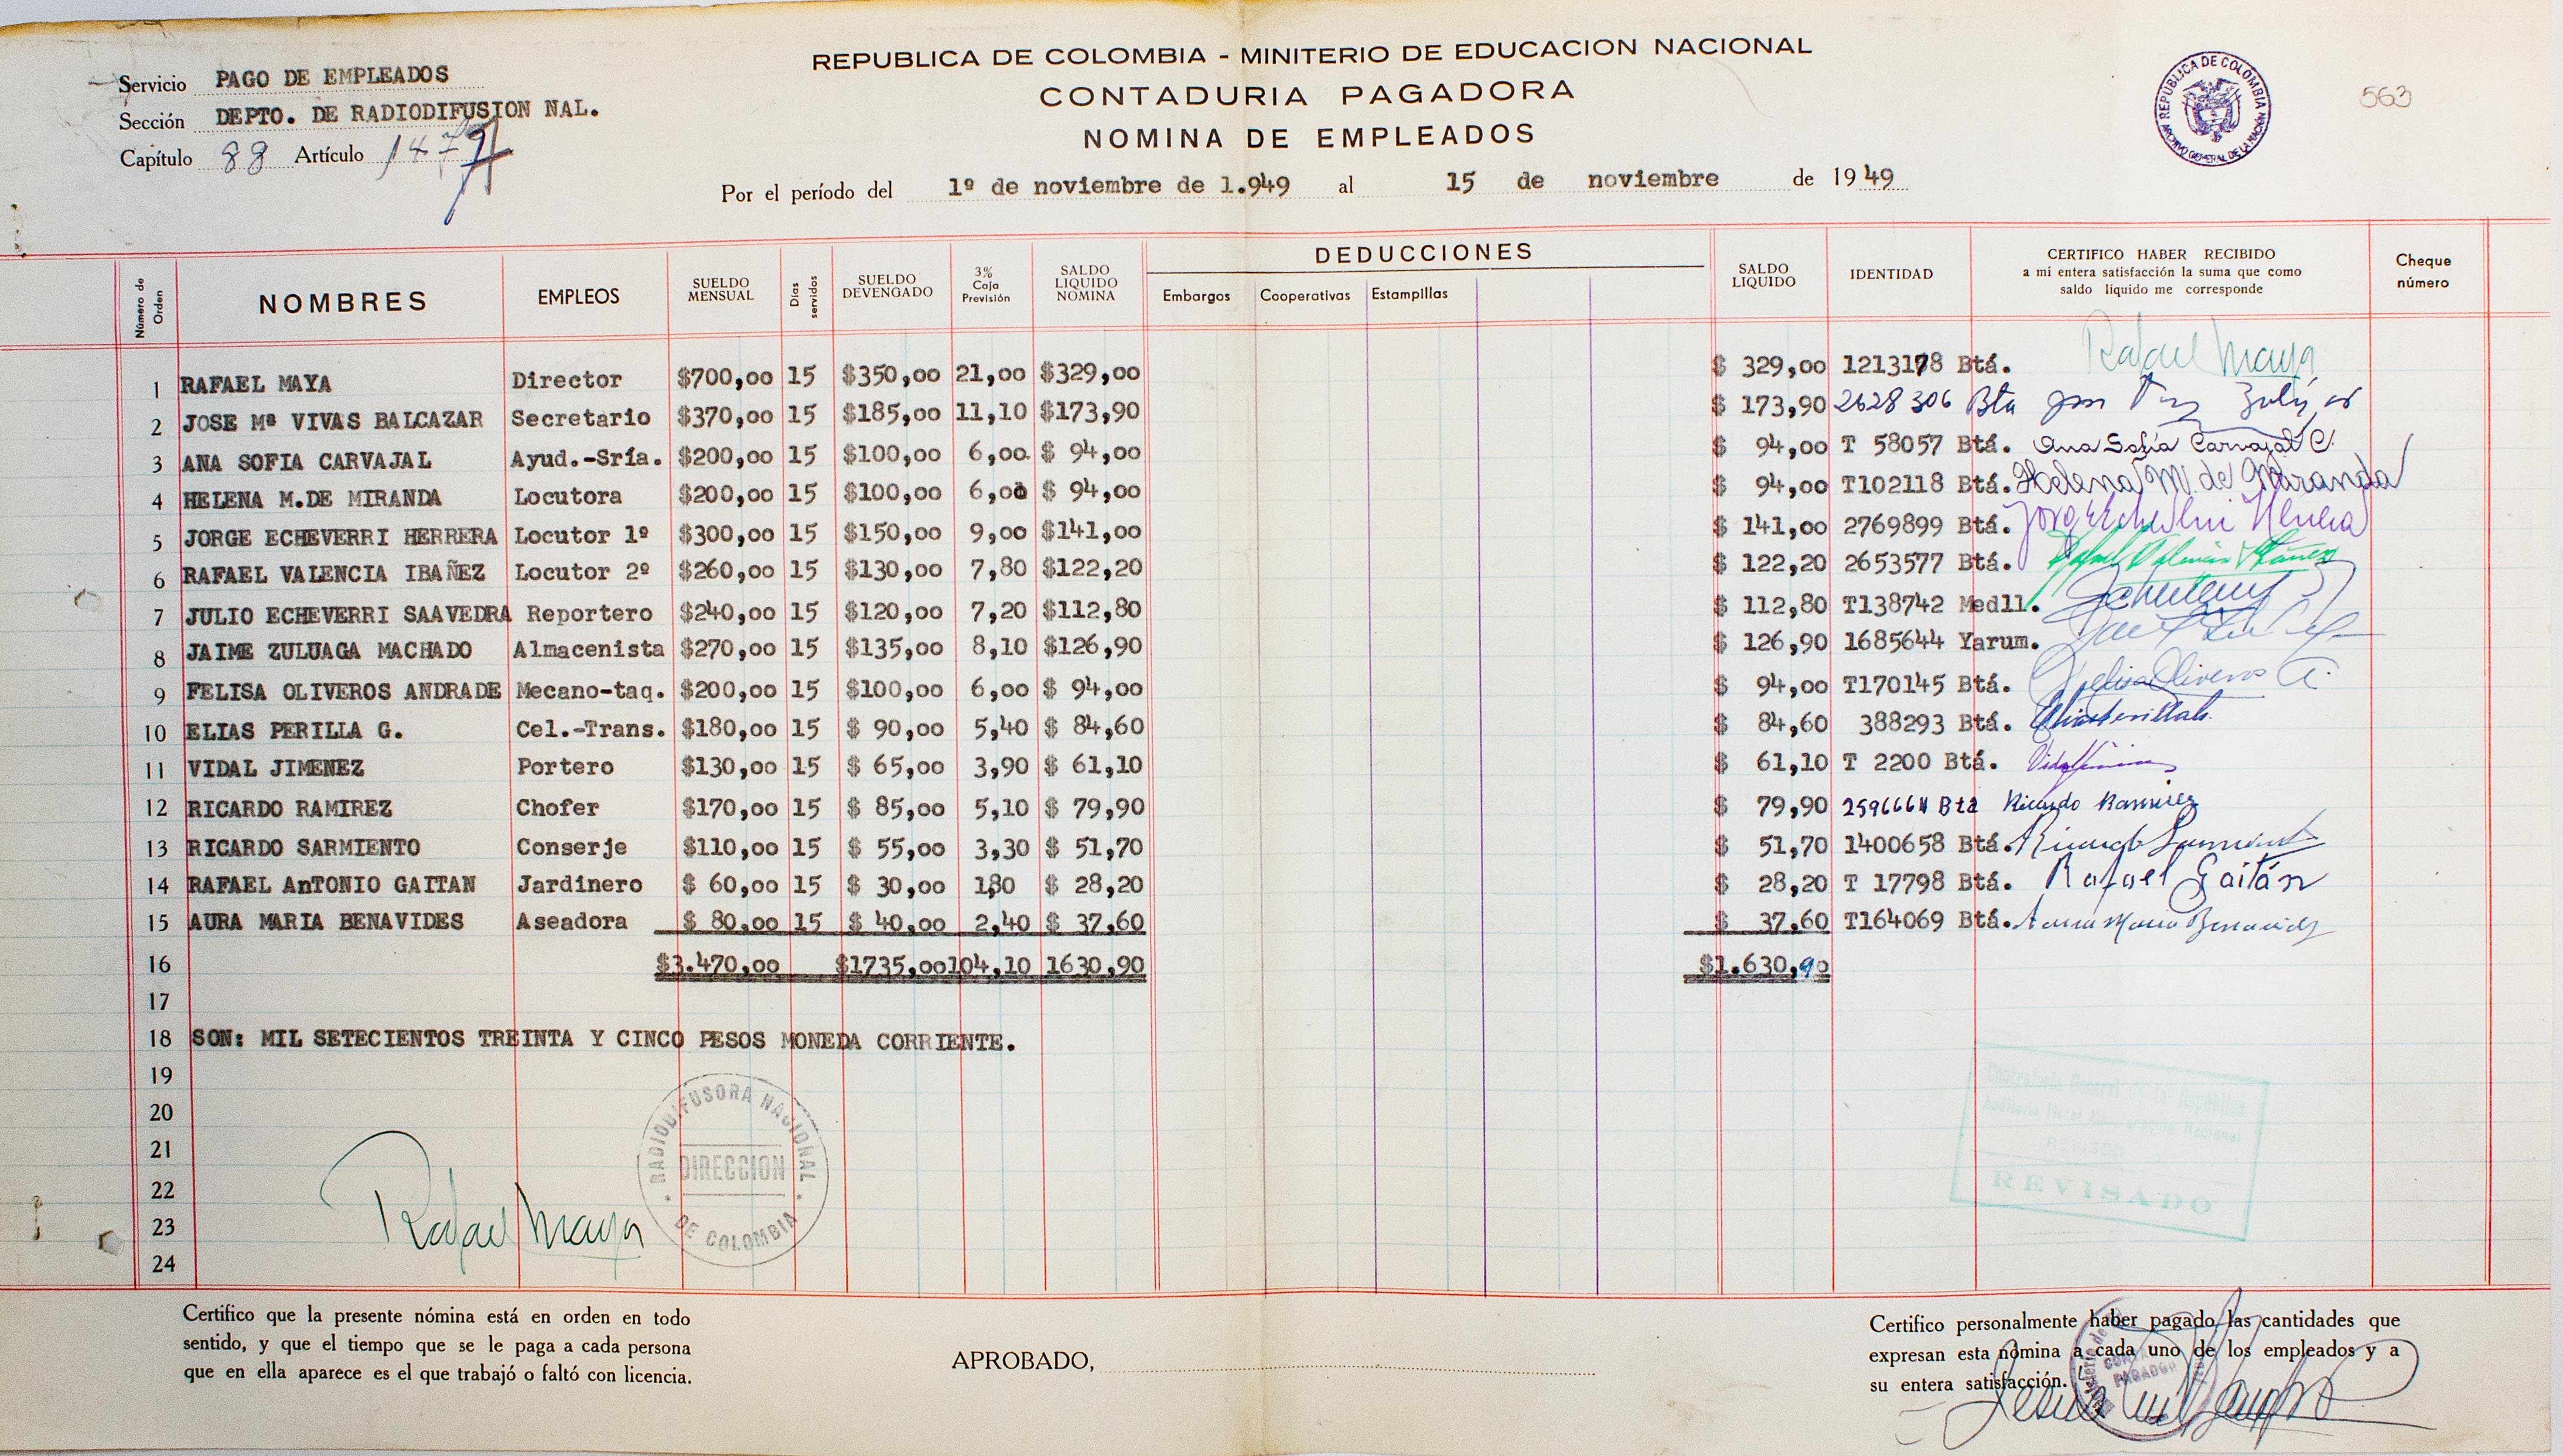 REPUBLICA DE COLOMBIA - MINITERIO DE EDUCACION NACIONAL
CONTADURIA PAGADORA
NOMINA DE EMPLEADOS
Servicio PAGO DE EMPLEADOS
Sección DEPTO. DE RADIODIFUSION NAL.
Capítulo 88 Artículo 1479
REPUBLICA DE COLOMBIA
ARCHIVO GENERAL DE LA NACIÓN
563
Por el período del 1º de noviembre de 1.949 al 15 de noviembre de 1949
Número de Orden NOMBRES EMPLEOS SUELDO MENSUAL Días servidos SUELDO DEVENGADO 3% Caja Previsión SALDO LIQUIDO NOMINA DEDUCCIONES Embargos Cooperativas Estampillas SALDO LIQUIDO IDENTIDAD CERTIFICO HABER RECIBIDO a mi entera satisfacción la suma que como saldo líquido me corresponde Cheque número
1 RAFAEL MAYA Director $700,00 15 $350,00 21,00 $329,00 $ 329,00 1213178 Btá. Rafael Maya
2 JOSE Mª VIVAS BALCAZAR Secretario $370,00 15 $185,00 11,10 $173,90 $ 173,90 2628306 Bta
3 ANA SOFIA CARVAJAL Ayud.-Sría. $200,00 15 $100,00 6,00 $ 94,00 $ 94,00 T 58057 Btá. Ana Sofía Carvajal C.
4 HELENA M.DE MIRANDA Locutora $200,00 15 $100,00 6,00 $ 94,00 $ 94,00 T102118 Btá. Helena M. de Miranda
5 JORGE ECHEVERRI HERRERA Locutor 1º $300,00 15 $150,00 9,00 $141,00 $ 141,00 2769899 Btá. Jorge Echeverri Herrera
6 RAFAEL VALENCIA IBAÑEZ Locutor 2º $260,00 15 $130,00 7,80 $122,20 $ 122,20 2653577 Btá. Rafael Valencia Ibáñez
7 JULIO ECHEVERRI SAAVEDRA Reportero $240,00 15 $120,00 7,20 $112,80 $ 112,80 T138742 Medll.
8 JAIME ZULUAGA MACHADO Almacenista $270,00 15 $135,00 8,10 $126,90 $ 126,90 1685644 Yarum.
9 FELISA OLIVEROS ANDRADE Mecano-taq. $200,00 15 $100,00 6,00 $ 94,00 $ 94,00 T170145 Btá. Felisa Oliveros A.
10 ELIAS PERILLA G. Cel.-Trans. $180,00 15 $ 90,00 5,40 $ 84,60 $ 84,60 388293 Btá.
11 VIDAL JIMENEZ Portero $130,00 15 $ 65,00 3,90 $ 61,10 $ 61,10 T 2200 Btá.
12 RICARDO RAMIREZ Chofer $170,00 15 $ 85,00 5,10 $ 79,90 $ 79,90 Bta Ricardo Ramirez
13 RICARDO SARMIENTO Conserje $110,00 15 $ 55,00 3,30 $ 51,70 $ 51,70 1400658 Btá. Ricardo Sarmiento
14 RAFAEL AnTONIO GAITAN Jardinero $ 60,00 15 $ 30,00 1,80 $ 28,20 $ 28,20 T 17798 Btá. Rafael Gaitán
15 AURA MARIA BENAVIDES Aseadora $ 80,00 15 $ 40,00 2,40 $ 37,60 $ 37,60 T164069 Btá. Aura Maria Benavides
16 $3.470,00 $1735,00 104,10 1630,90 $1.630,90
17
18 SON: MIL SETECIENTOS TREINTA Y CINCO PESOS MONEDA CORRIENTE.
19
20
21
22
23
24
Rafael Maya
RADIODIFUSORA NACIONAL
DIRECCION
DE COLOMBIA
Contraloría General de la República
REVISADO
Certifico que la presente nómina está en orden en todo
sentido, y que el tiempo que se le paga a cada persona
que en ella aparece es el que trabajó o faltó con licencia.
APROBADO,
Certifico personalmente haber pagado las cantidades que
expresan esta nómina a cada uno de los empleados y a
su entera satisfacción.
PAGADOR